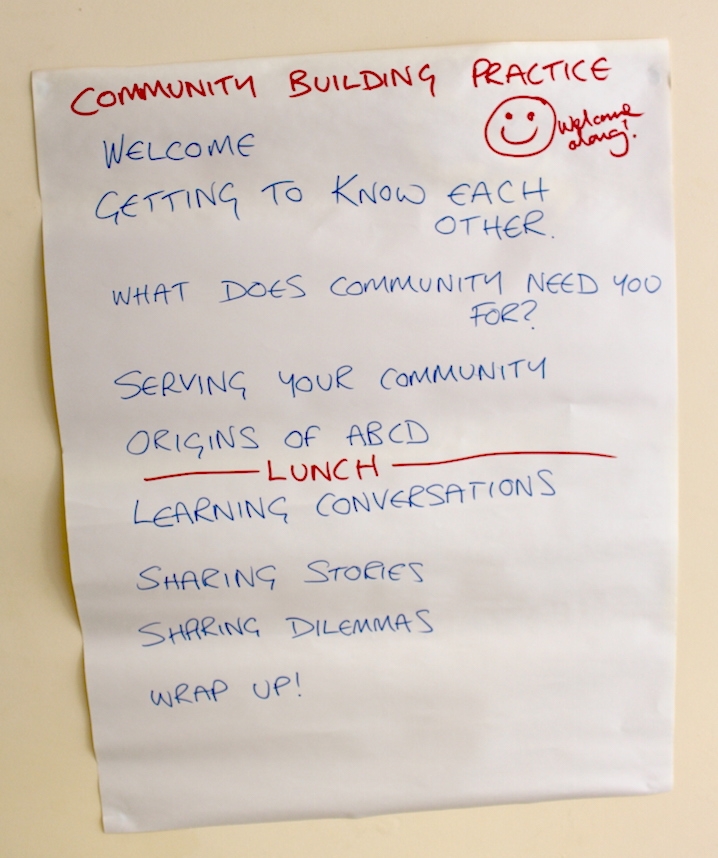 COMMUNITY BUILDING PRACTICE
Welcome
along!
WELCOME
GETTING TO KNOW EACH
OTHER.
WHAT DOES COMMUNITY NEED YOU
FOR?
SERVING YOUR COMMUNITY
ORIGINS OF ABCD
LUNCH
LEARNING CONVERSATIONS
SHARING STORIES
SHARING DILEMMAS
WRAP UP!